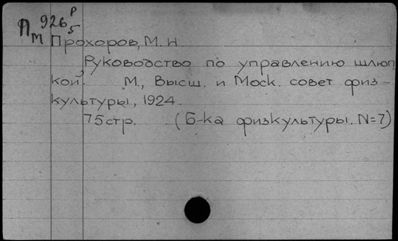 П 926 Р
М 5
Прохоров, М. Н
Руководство по управлению шлюп
кой. М., Высш. и Моск. совет физ-
культуры, 1924.
75 стр. (Б-ка физкультуры. N=7)